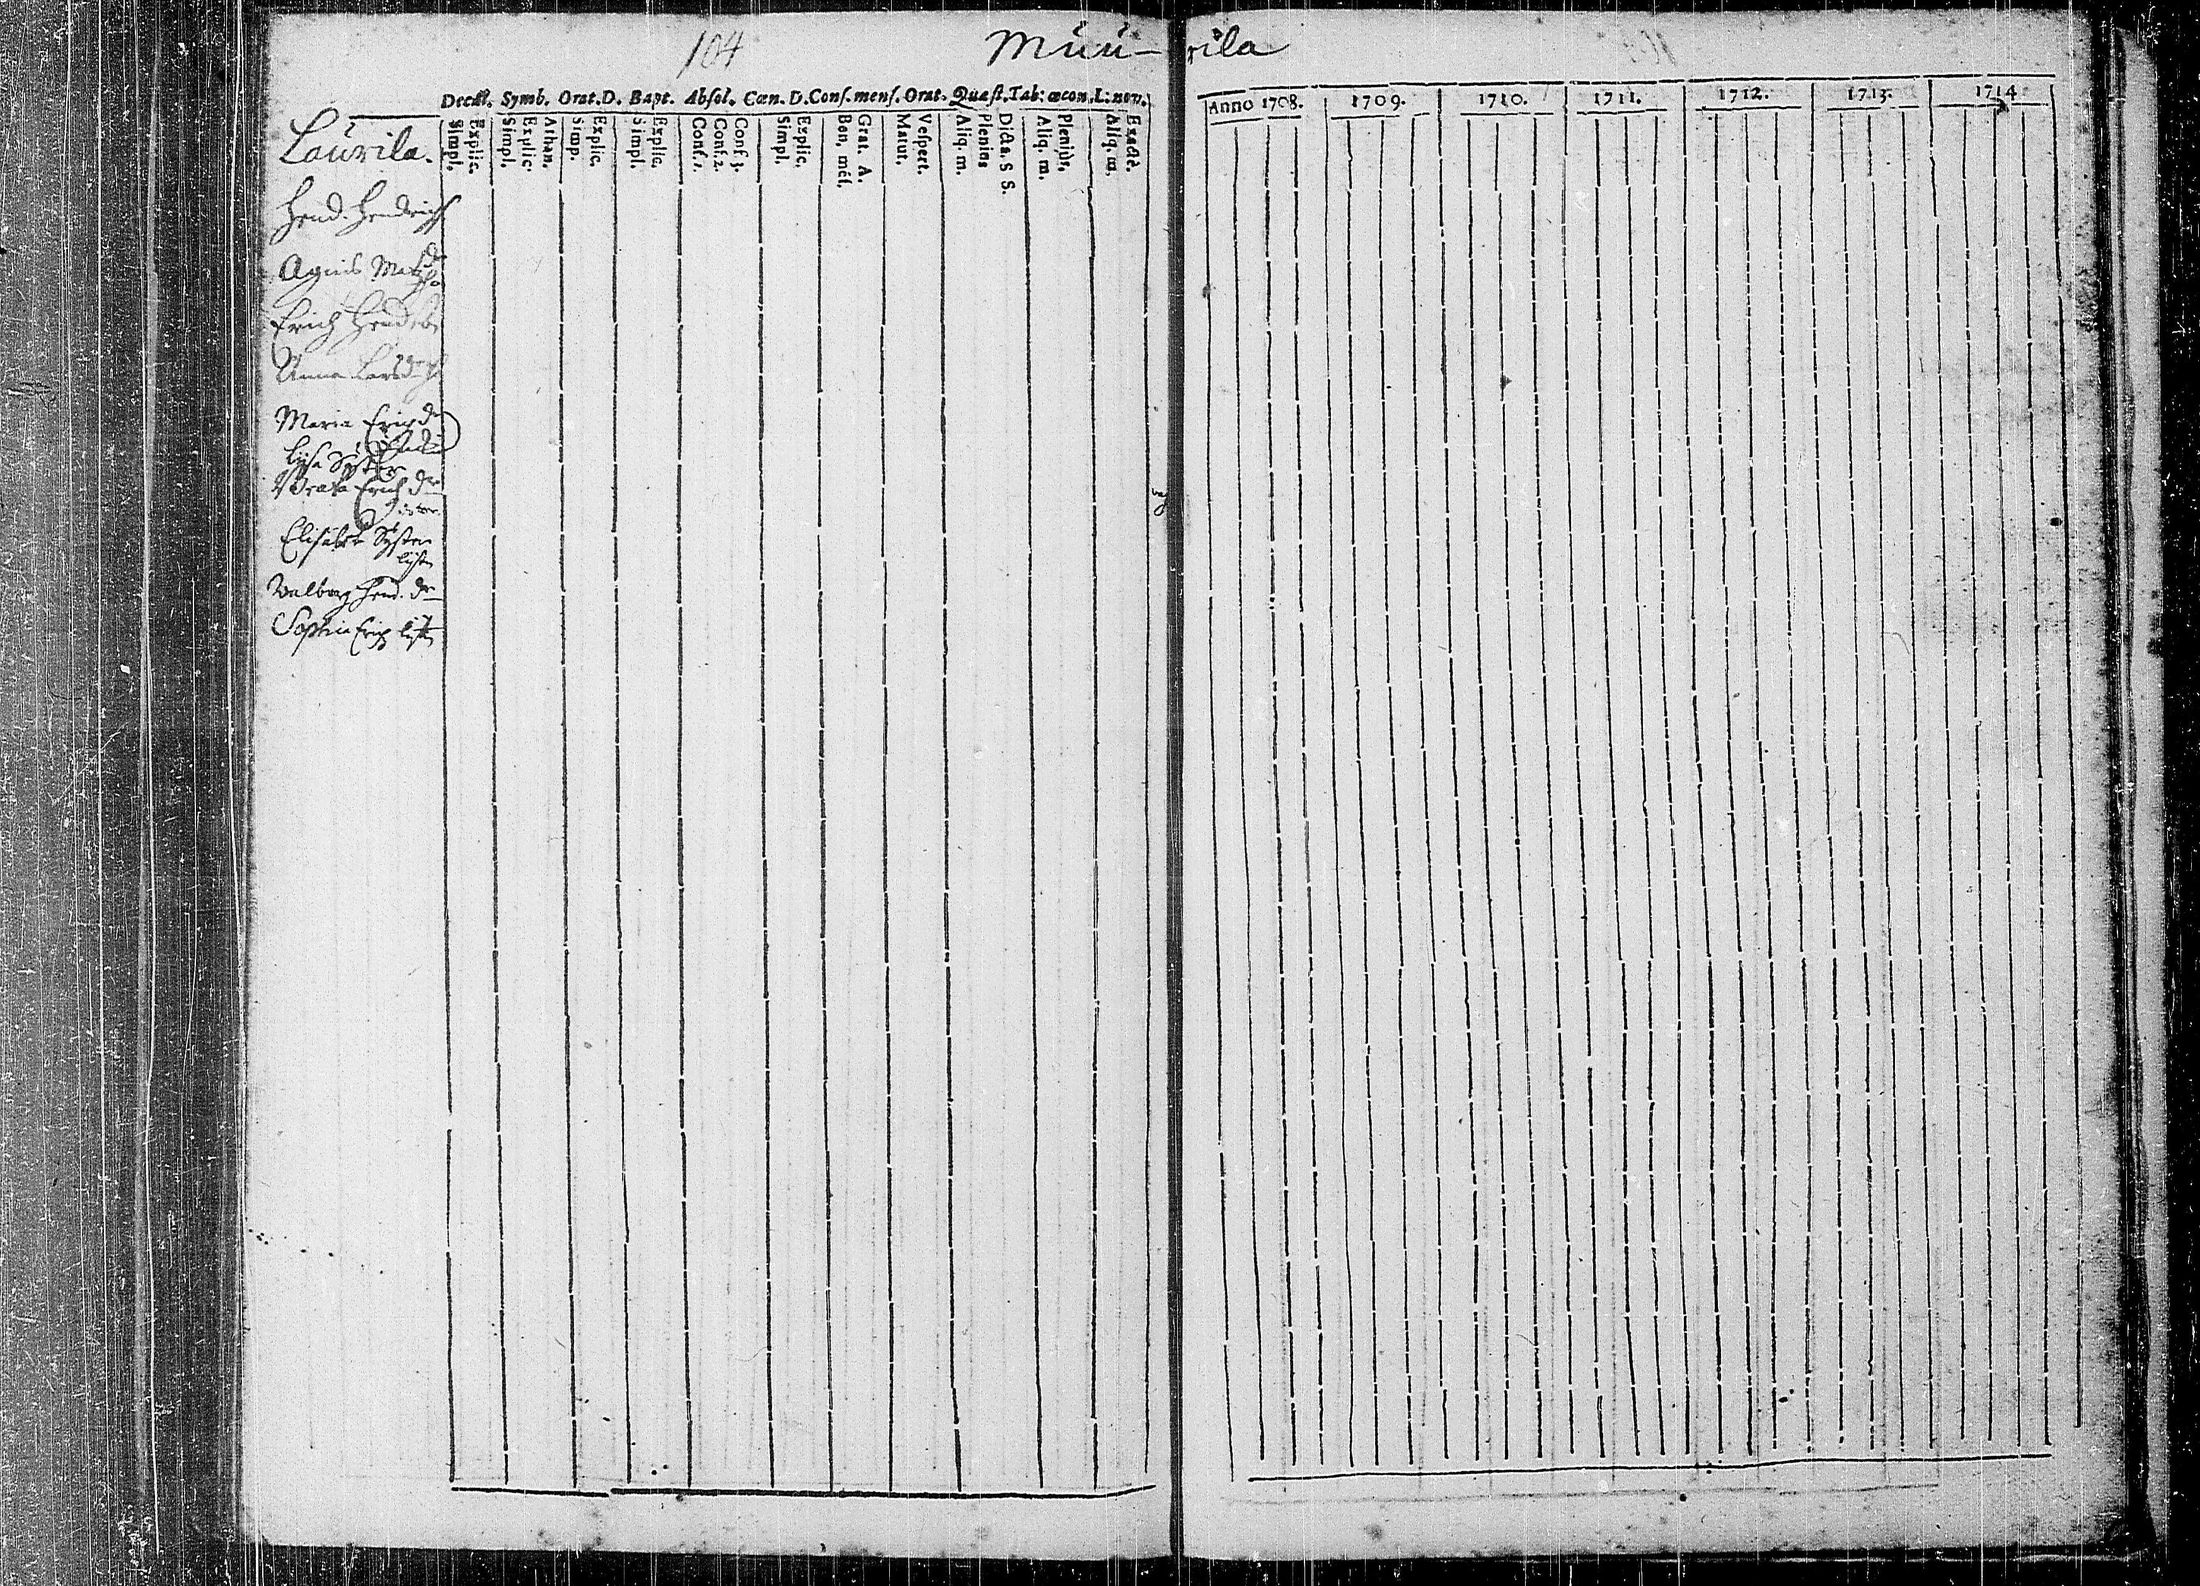 104
Muu-rila
Decal. Symb. Orat. D. Bapt. Absol. Cœn. D. Conf. mens. Orat. Quæst. Tab: œcon. L: nov.
Simpl. Explic. Simpl. Explic. Athan. Simp. Explic. Simpl. Explic. Conf. 1. Conf. 2. Conf 3. Simpl. Explic. Ben, mēs, Grat. A. Matut. Vespert. Aliq. m. Plenius Dicta. S S. Aliq. m. Pleniùs. Aliq. m. Exactè.
Laurila.
Hend. Hendrichss
Agnis Mats dr
Erich Hend
Anna Larsdr
Maria Erichsdr
Lisa Syster
Erich dr
Elisabet Syster
Valborg Hend. dr
Sophia Erichs
Anno 1708. 1709. 1710. 1711. 1712. 1713. 1714